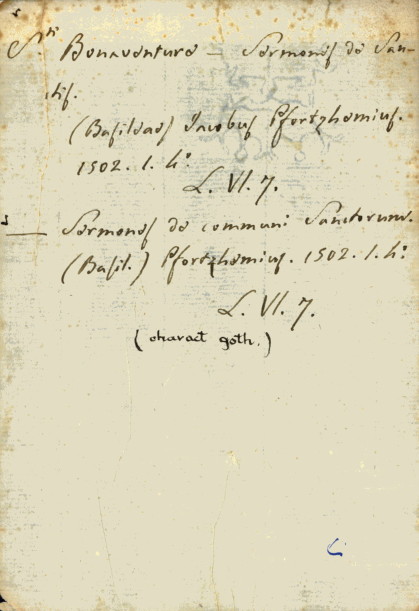 s
Sti Bonaventura — Sermones de San-
ctis.
(Basileae) Jacobus Pfortzhemius.
1502. 1. 4o
L. VI. 7.
s
— Sermones de communi Sanctorum.
(Basil.) Pfortzhemius. 1502. 1. 4o
L. VI. 7.
(charact goth.)